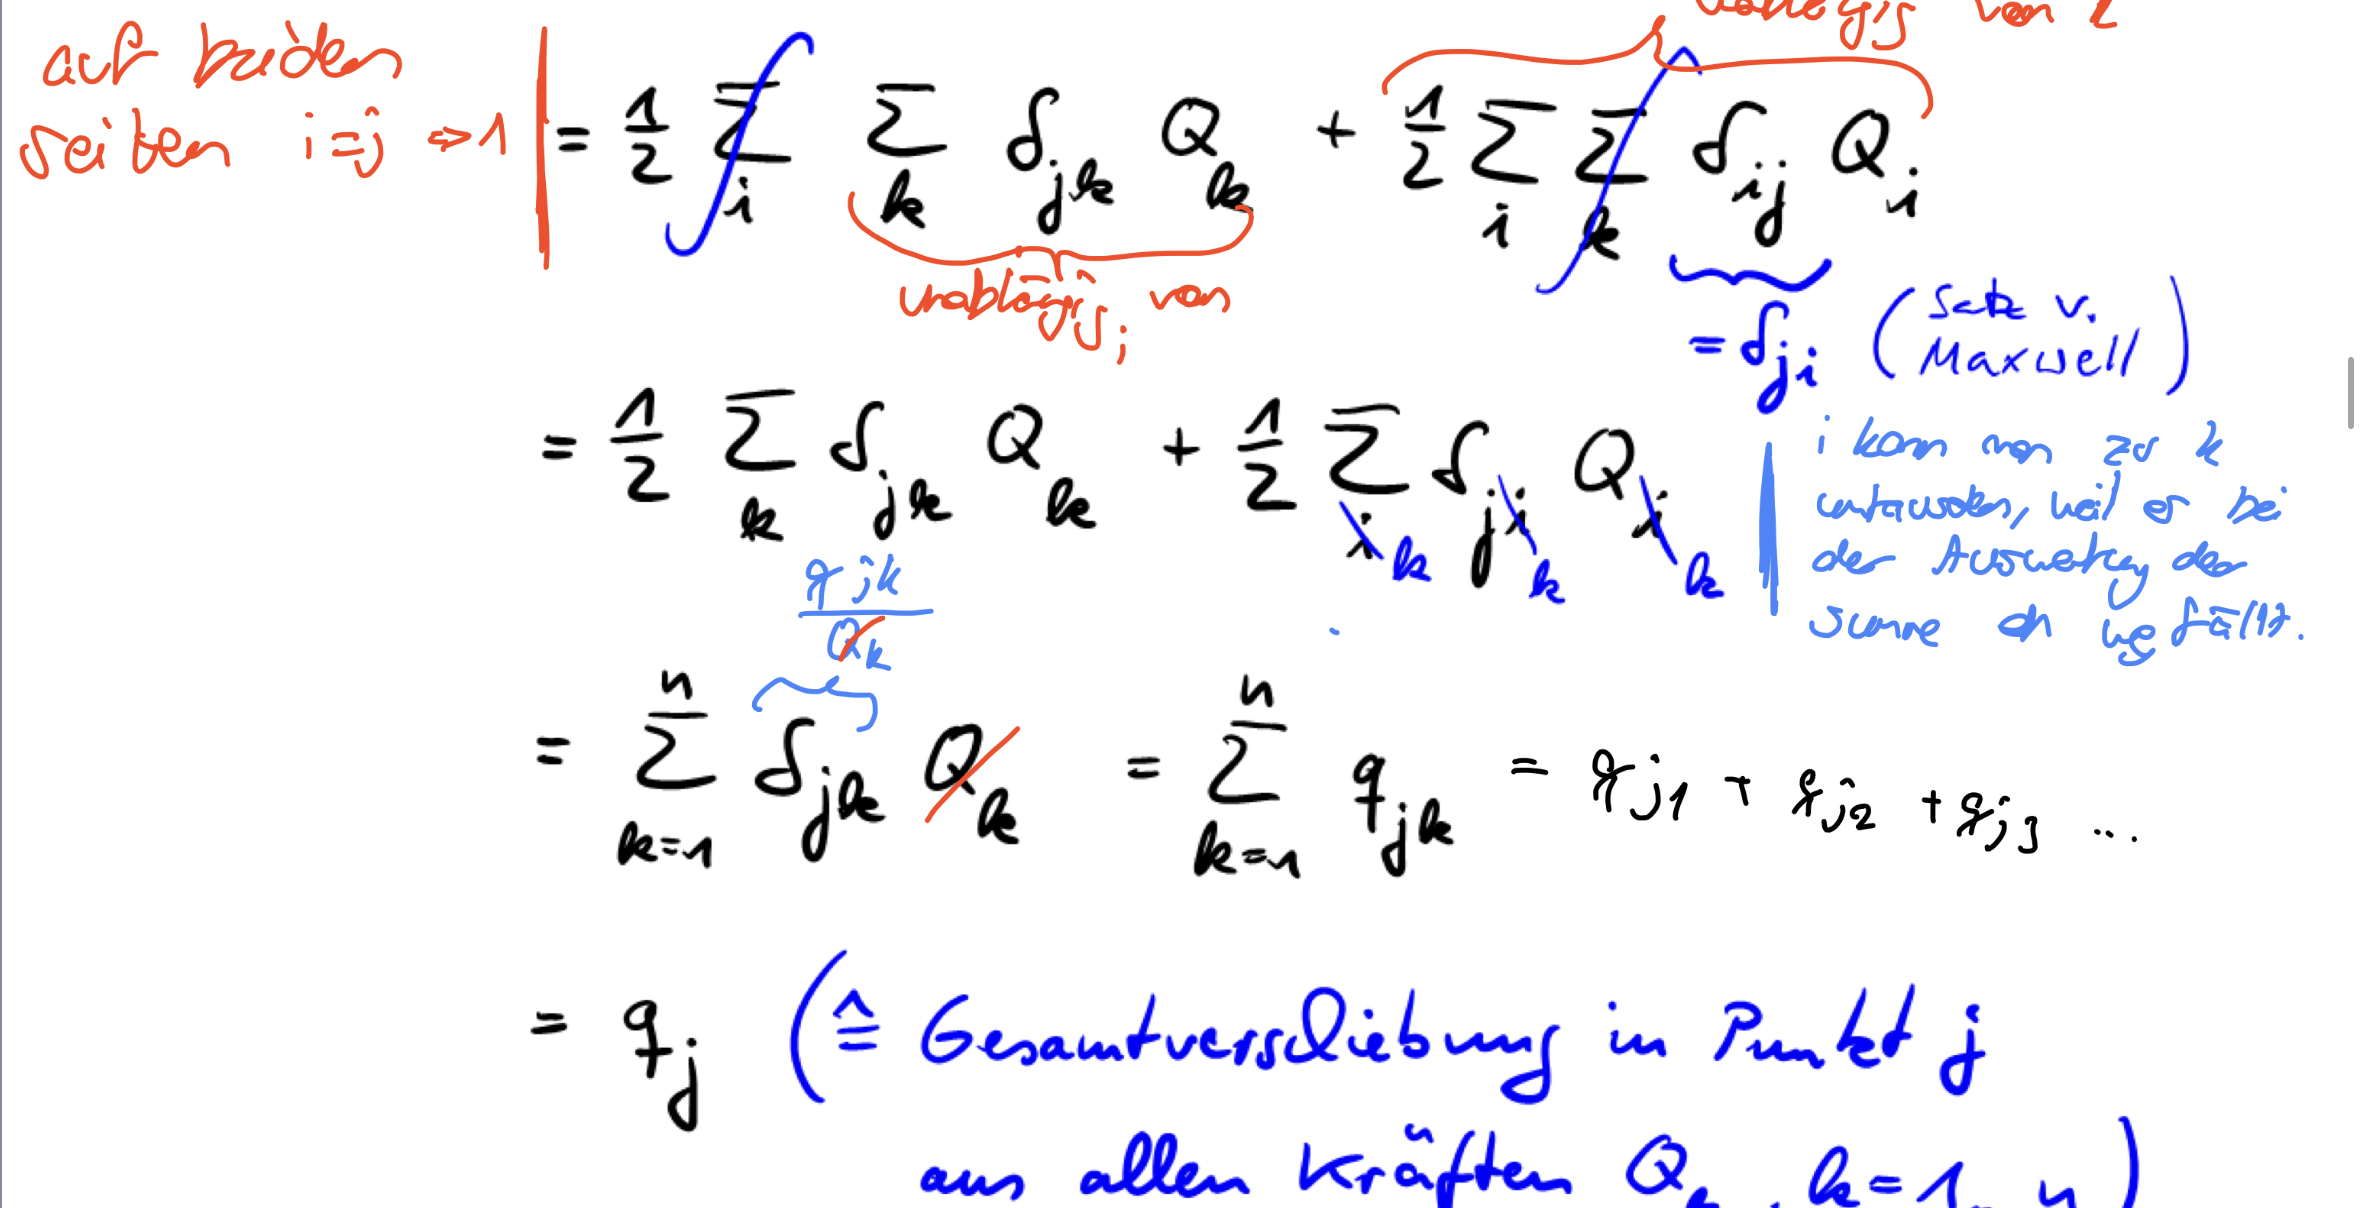 von
auf beiden
seiten i=j ⇒ 1
= 1/2 Σ_i Σ_k δ_jk Q_k + 1/2 Σ_i Σ_k δ_ij Q_i
unabhängig von i
= δ_ji (Satz v. Maxwell)
= 1/2 Σ_k δ_jk Q_k + 1/2 Σ_i δ_ji Q_i
k k k
i kann man zu k
umtauschen, weil es bei
der Auswertung der
summe eh wegfällt.
q_jk / Q_k
= Σ_{k=1}^n δ_jk Q_k = Σ_{k=1}^n q_jk = q_j1 + q_j2 + q_j3 ...
= q_j (≙ Gesamtverschiebung in Punkt j
aus allen Kräften Q_k, k=1, n)